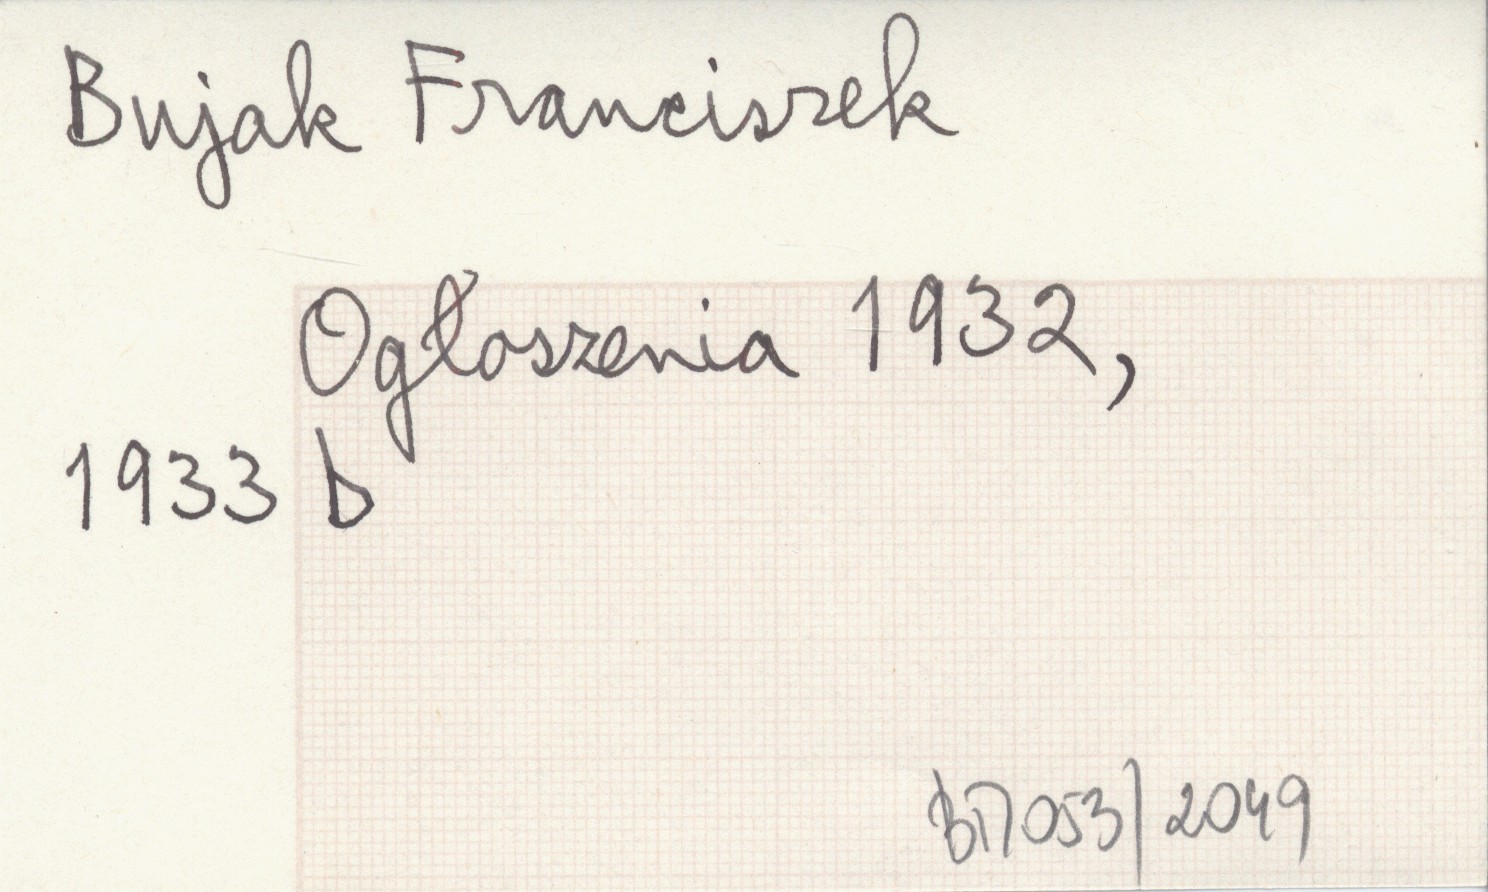 Bujak Franciszek
Ogłoszenia 1932,
1933 b
053/2049